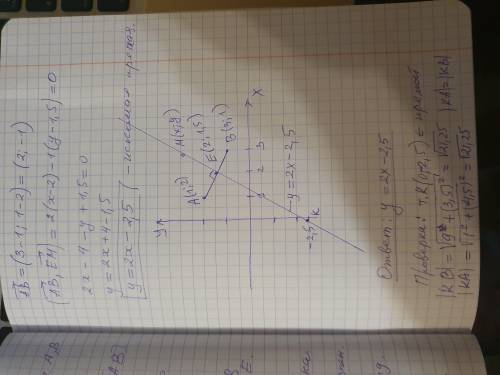 AB = (3-1; 1-2) = (2; -1)
(AB, EM) = 2(x-2) - 1(y-1,5) = 0
2x - 4 - y + 1,5 = 0
y = 2x + 4 - 1,5
y = 2x - 2,5 - искомая прямая.
y
A(1;2)
M(x;y)
E(2;1,5)
B(3;1)
1
3
x
y = 2x - 2,5
-2,5
K
Ответ: y = 2x - 2,5
Проверка: т. K(0;-2,5) ∈ прямой
|KB| = √21,25 |KA| = |KB|
|KA| = √21,25